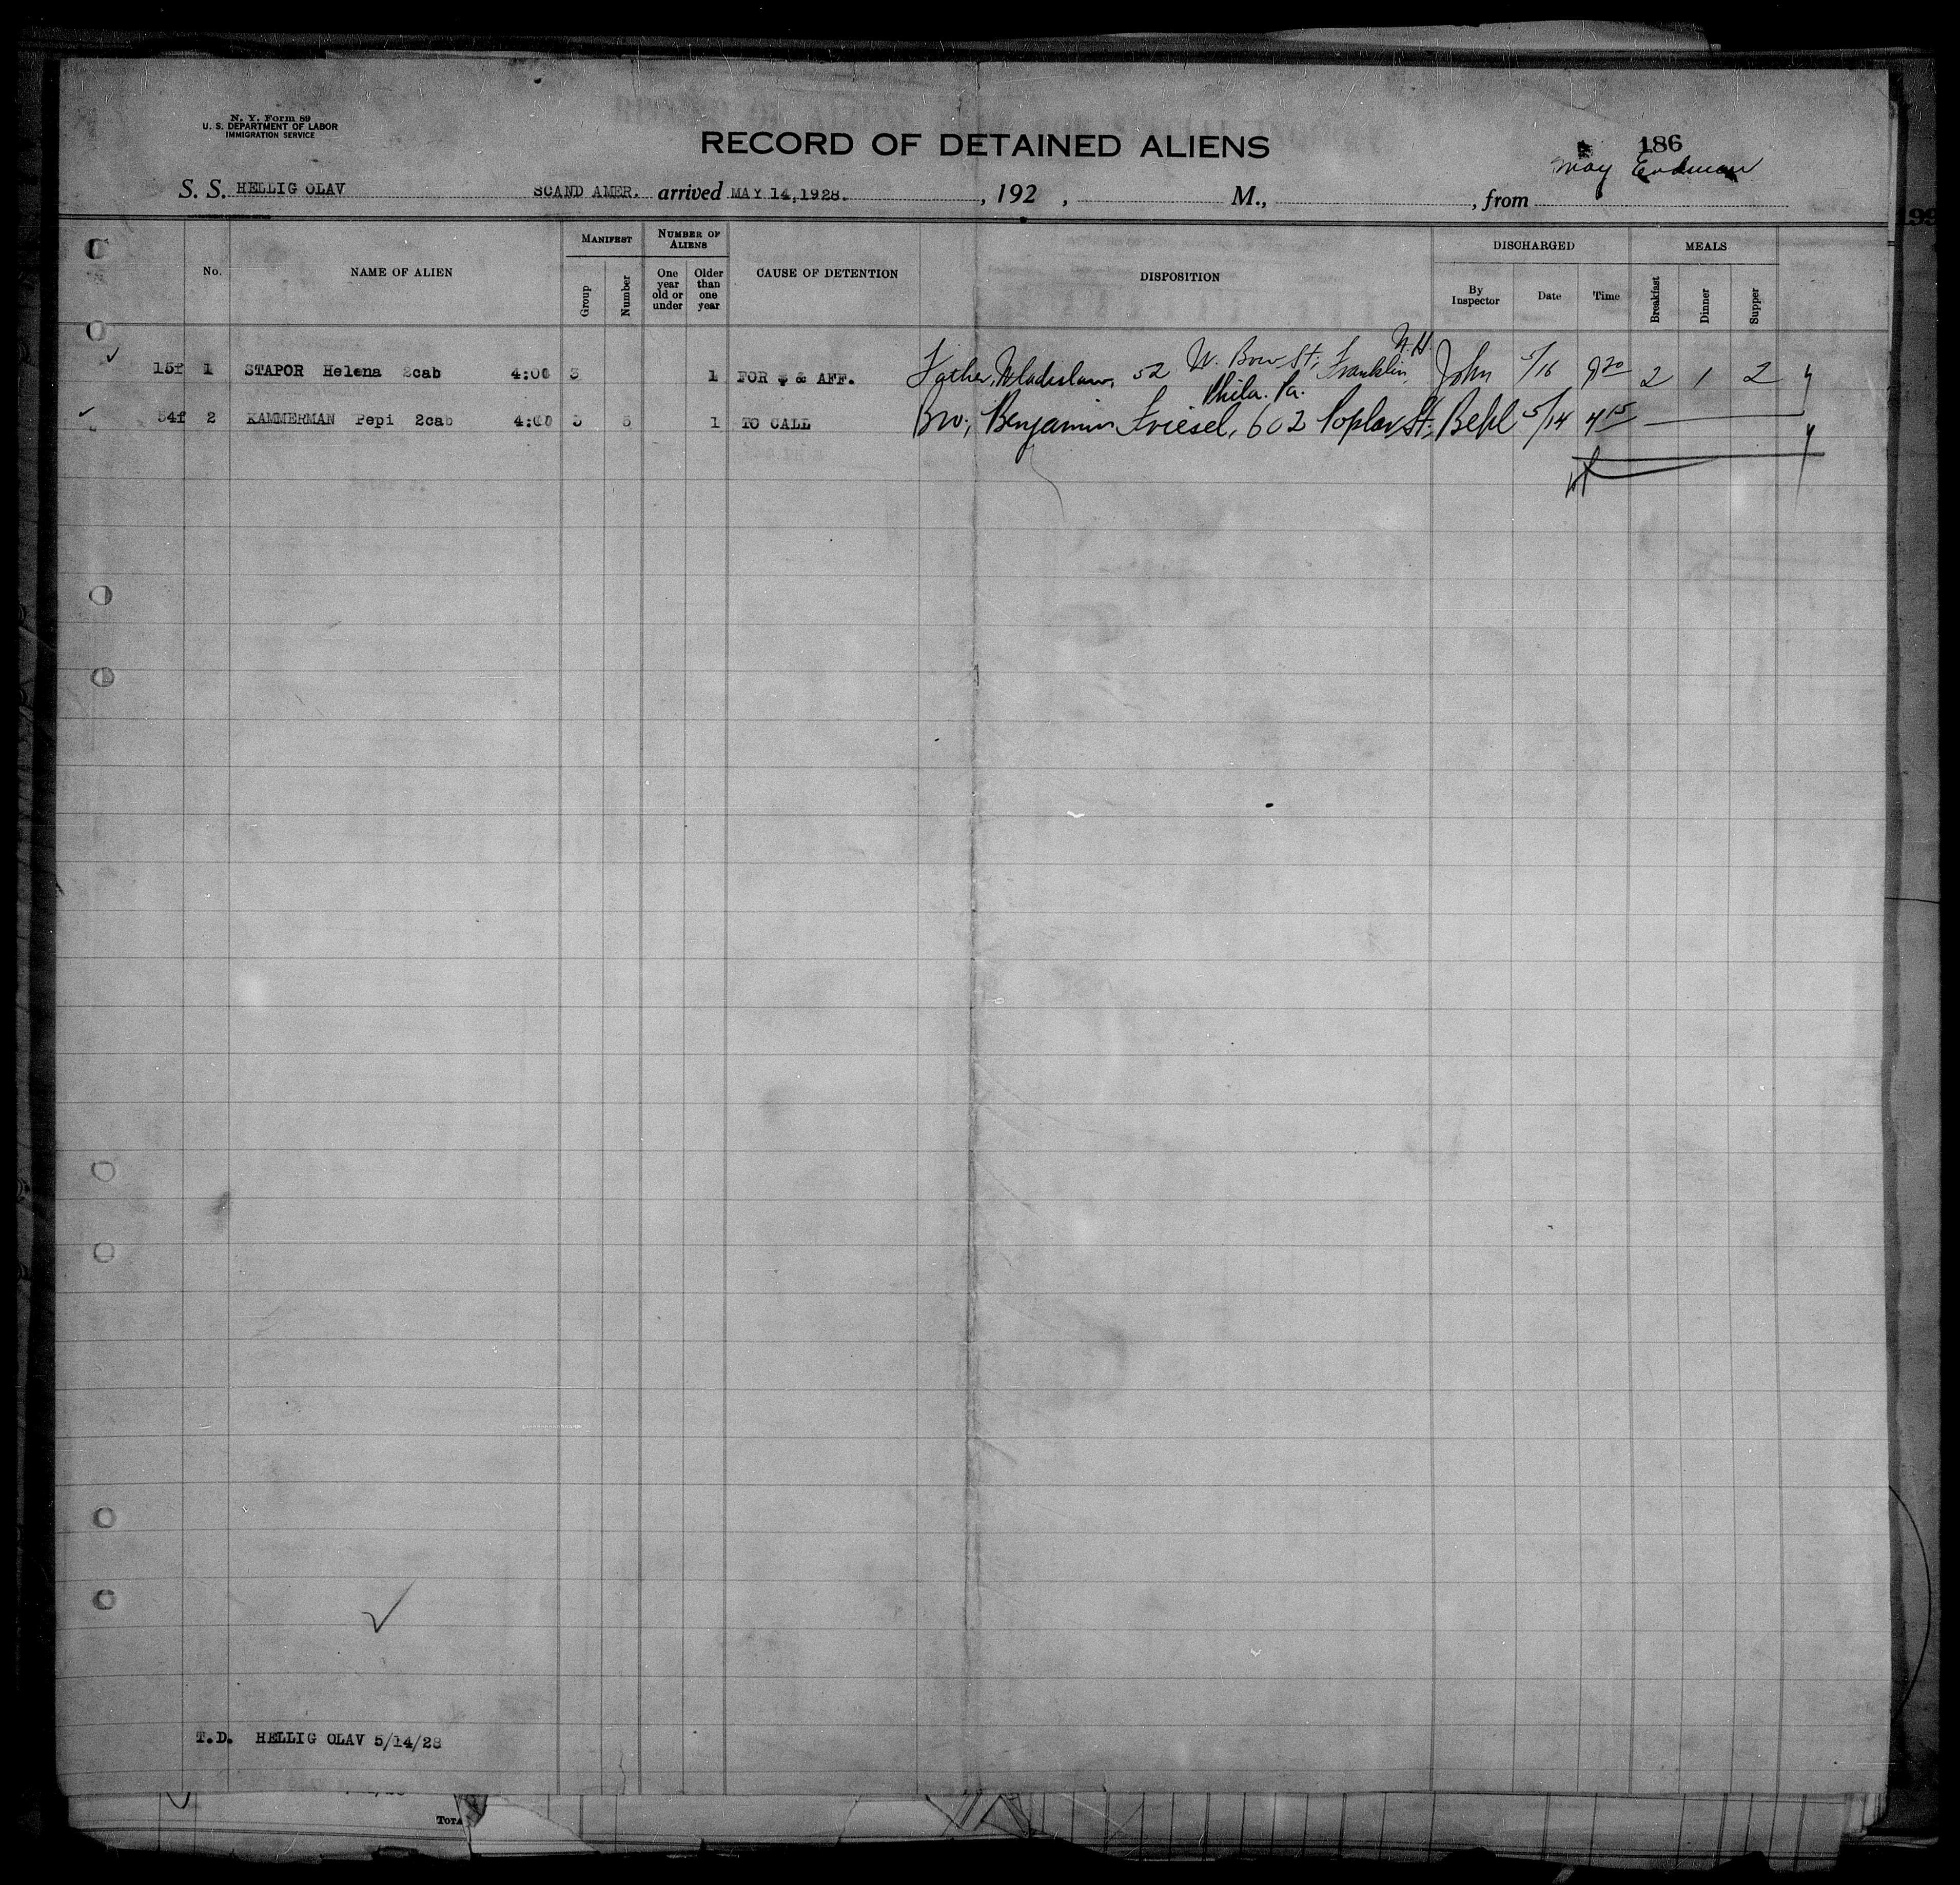 N. Y. Form 89
U. S. DEPARTMENT OF LABOR
IMMIGRATION SERVICE
RECORD OF DETAINED ALIENS
186
May Erdman
S. S. HELLIG OLAV SCAND AMER. arrived MAY 14,1928. , 192 , M., , from
No. NAME OF ALIEN MANIFEST Group Number NUMBER OF ALIENS One year old or under Older than one year CAUSE OF DETENTION DISPOSITION DISCHARGED By Inspector Date Time MEALS Breakfast Dinner Supper
N.H.
15f 1 STAPOR Helena 2cab 4:00 3 1 FOR & AFF. Father, Wladislaw, 52 W. Bow St, Franklin, John 5/16 2 1 2
Phila. Pa.
54f 2 KAMMERMAN Pepi 2cab 4:00 3 1 TO CALL Bro, Benjamin Friesel, 602 Poplar St, Behl 5/14 4 15
T.D. HELLIG OLAV 5/14/28